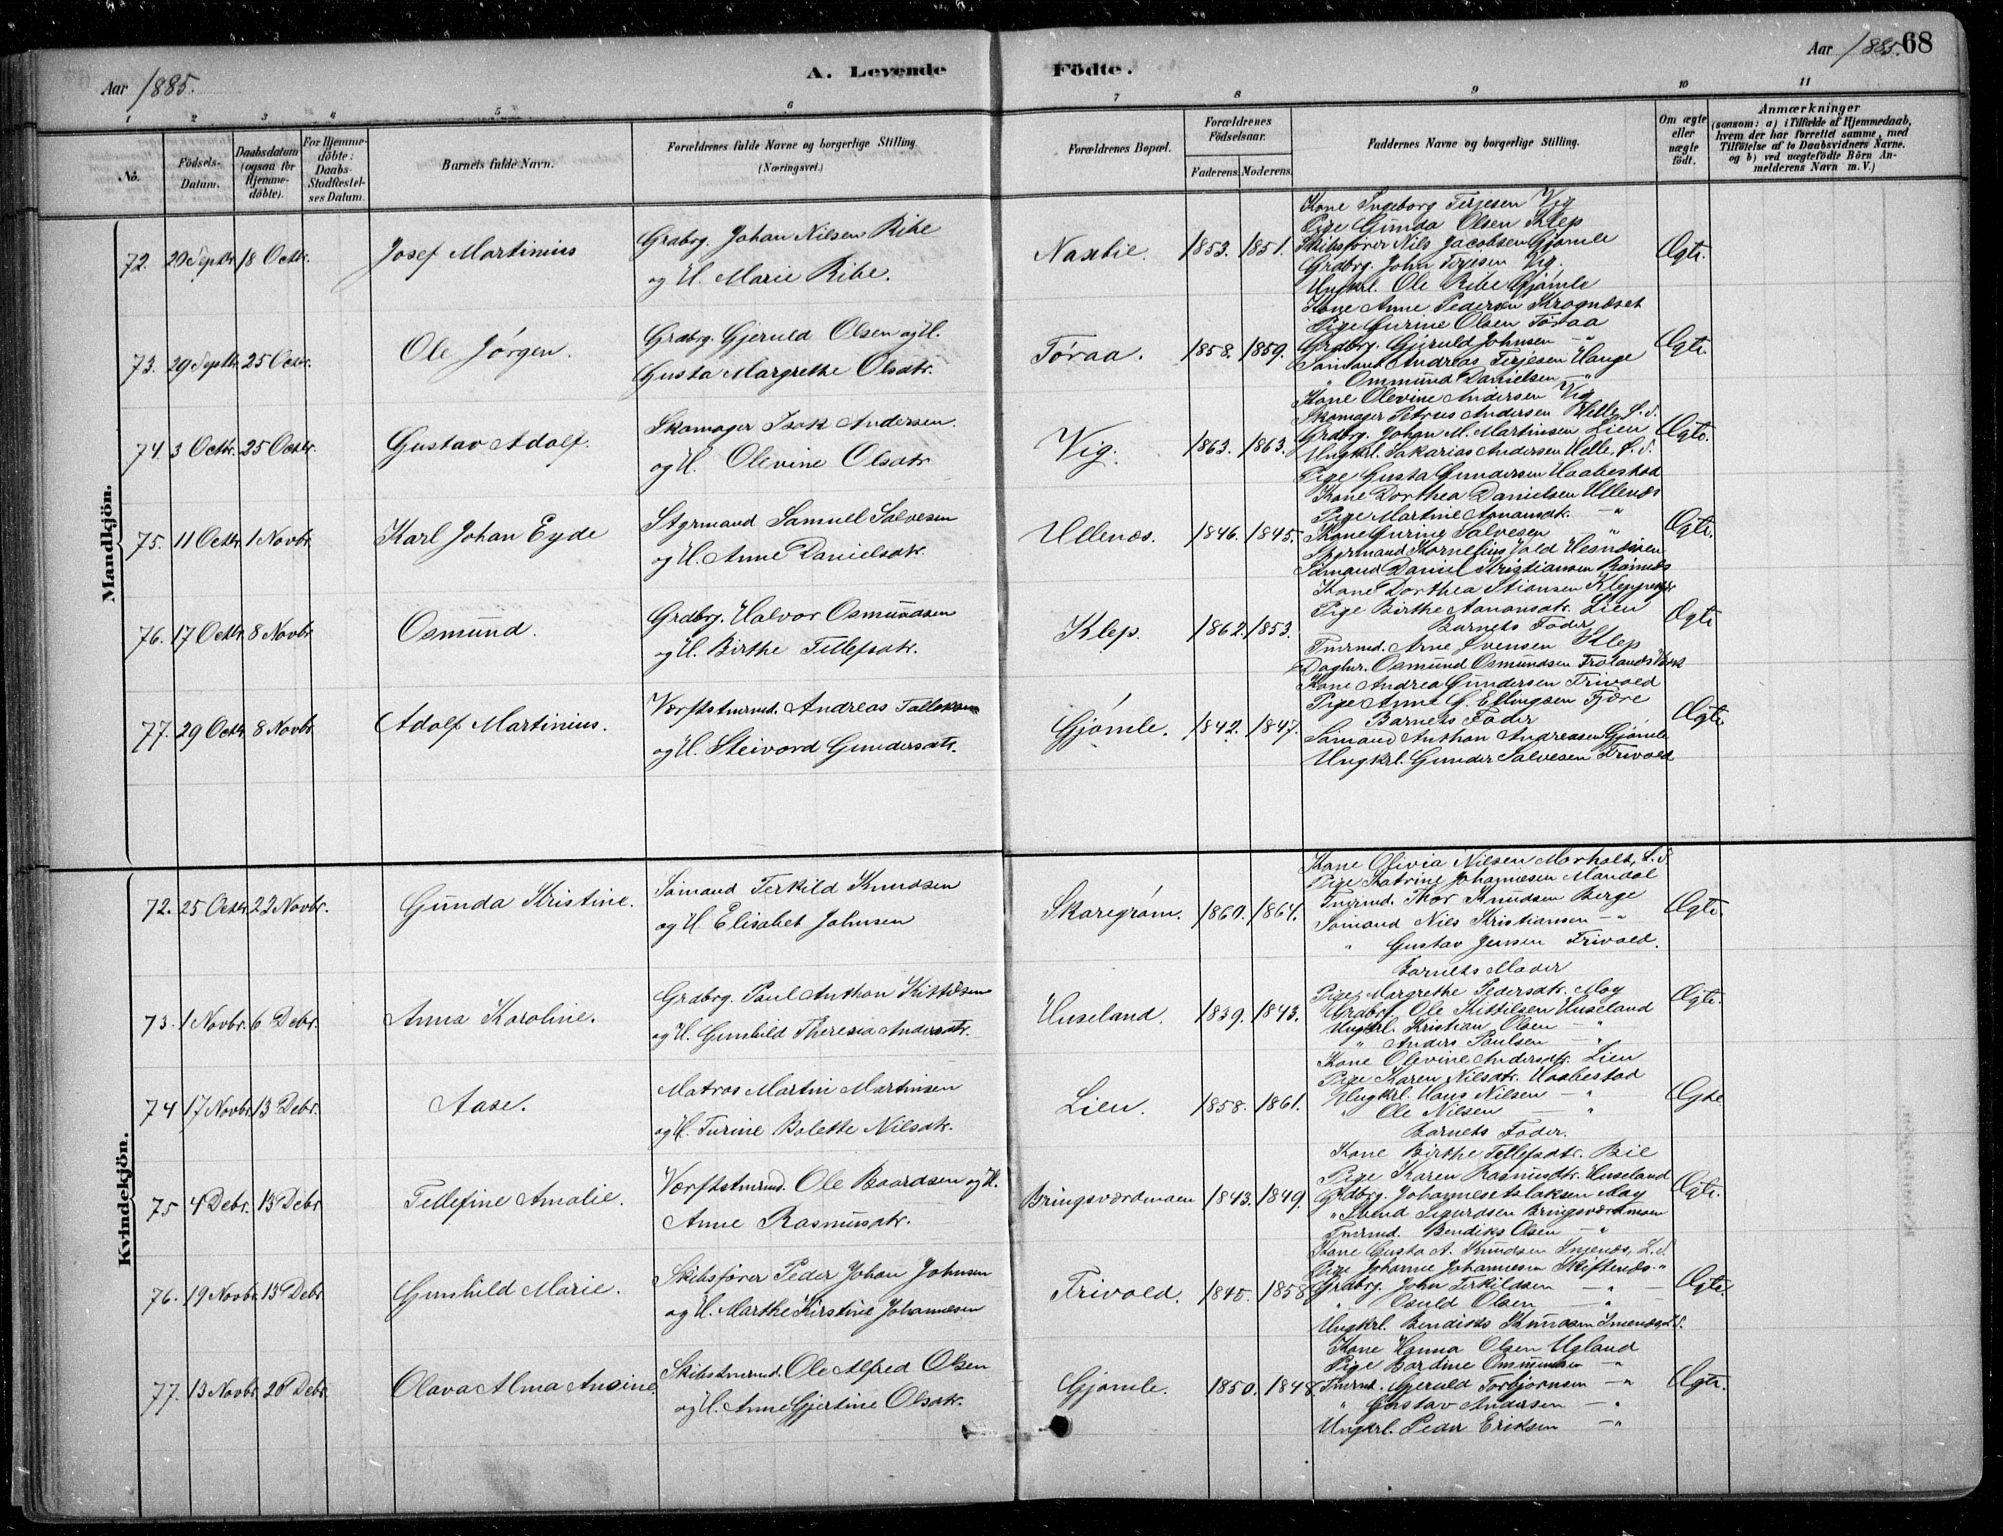 Aar 1885.
A. Levende Födte.
Aar 1885. 68
1 2 3 4 5 6 7 8 9 10 11
No.
Födsels-Datum.
Daabsdatum (ogsaa for Hjemme-döbte).
For Hjemme-döbte: Daabs-Stadfæstel-ses Datum.
Barnets fulde Navn.
Forældrenes fulde Navne og borgerlige Stilling (Næringsvei.)
Forældrenes Bopæl.
Forældrenes Födselsaar.
Faderens. Moderens.
Faddernes Navne og borgerlige Stilling.
Om ægte eller uægte födt.
Anmærkninger
(saasom: a) i Tilfælde af Hjemmedaab, hvem der har forrettet samme, med Tilföielse af to Daabsvidners Navne. og b) ved uægtefödte Börn An-melderens Navn m. V.)
Mandkjön.
72. 20 Septbr. 18 Octbr. Josef Martinius
Grdbrg. Johan Nilsen Ribe
og H. Marie Ribe.
Naxebie. 1853. 1851. Ægte.
Kone Ingeborg Terjesen Vig
Pige Gunda Olsen Klep
Skibsfører Nils Jacobsen Gjømle
Grdbrg. John Terjesen Vig.
Ungkrl. Ole Ribe Gjømle
73. 29 Septbr. 25 Octbr. Ole Jørgen.
Grdbrg. Gjeruld Olsen og H.
Gusta Margrethe Olsdtr.
Toraa. 1858. 1859. Ægte.
Kone Anne Pedersen Krognæset
Pige Gurine Olsen Toraa
Grdbrg. Gjeruld Johnsen — „
Sømand Andreas Terjesen Hauge
„ Ommund Danielsen — „
74. 3 Octbr. 25 Octbr. Gustav Adolf.
Skomager Isak Andersen
og H. Olevine Olsdtr.
Vig. 1863. 1863. Ægte.
Kone Olevine Andersen Vig
Skomager Petrus Andersen Helle, L. S.
Grdbrg. Johan M. Martinsen Lien
Ungkrl. Sakarias Andersen Helle, L. S.
Pige Gusta Gundersen Haabestad
75. 11 Octbr. 1 Novbr. Karl Johan Eyde
Styrmand Samuel Salvesen
og H. Anne Danielsdtr.
Ullenæs. 1846. 1845. Ægte.
Kone Dorthea Danielsen Ullenæs
Pige Martine Aanonsdtr. — „
Kone Guring Salvesen „
Styrmand Kornelius Vold Hesnesøen
Sømand Daniel Kristiansen
76. 17 Octbr. 8 Novbr. Osmund.
Grdbrg. Halvor Osmundsen
og H. Birthe Tellefsdtr.
Klep. 1862. 1853. Ægte
Kone Dorthea Stiansen
Pige Birthe Aanonsdtr. Lien
Barnets Fader
Tmrmd. Arne Evensen Klep
Dagbr. Osmund Osmundsen Frolands Værk
77. 29 Octbr. 8 Novbr. Adolf Martinius.
Værftstmrmd. Andreas
og H. Steivord Gundersdtr.
Gjømle. 1842. 1847. Ægte
Kone Andrea Gundersen Trivold
Pige Anne G. Ellingsen Fjære
Barnets Fader
Sømand Anthon Andreasen Gjømle
Ungkrl. Gunder Salvesen Trivold
Kvindekjön.
72. 25 Octbr. 22 Novbr. Gunda Kristine.
Sømand Terkild Knudsen
og H. Elisabet Johnsen
Skaregrøm. 1860. 1864. Ægte.
Kone Olivia Nilsen Morholt, L. S.
Pige Katrine Johannesen Mandal
Tmrmd. Thor Knudsen Berge
Sømand Nils Kristiansen — „
„ Gustav Jensen Trivold.
73. 1 Novbr. 6 Debr. Anna Karoline.
Grdbrg. Paul Anthon Kittilsen
og H. Gunhild Theresia Andersdtr.
Huseland. 1839. 1843. Ægte.
Barnets Moder
Pige Margrethe Pedersdtr. Moy
Grdbrg. Ole Kittilsen Huseland
Ungkrl. Kristian Olsen — „
„ Anders Paulsen — „
74 17 Novbr. 13 Debr. Aase.
Matros Martin Martinsen
og H. Turine Bolette Nilsdtr.
Lien. 1858. 1861. Ægte
Kone Olevine Andersdtr. Lien
Pige Karen Nilsdtr. Haabestad
Ungkrl. Hans Nilsen — „
„ Ole Nilsen — „
Barnets Fader.
75 4 Debr. 13 Debr. Tellefine Amalie.
Værftstmrmd. Ole Baardsen og H.
Anne Rasmusdtr.
Bringsværdmoen 1843. 1849. Ægte.
Kone Birthe Tellefsdtr. Bie
Pige Karen Rasmusdtr. Huseland
Grdbrg. Johannes Islaksen Moy
„ Svend Sigurdsen Bringsværdmoen
Tmrmd. Bendiks Olsen — „
76. 19 Novbr. 13 Debr. Gunhild Marie.
Skibsfører Peder Johan Johnsen
og H. Marthe Kirstine Johannesen
Trivold. 1845. 1858 Ægte.
Kone Gusta A. Knudsen Injenæs, L. S.
Pige Johanne Johannesen Skiftenæs „
Grdbrg. John Terkildsen — „ —
„ Osuld Olsen — „
Ungkrl. Bendiks Knudsen Injenæs, L. S.
77. 13 Novbr. 26 Debr. Olava Alma Ansine
Skibstmrmd. Ole Alfred Olsen
og H. Anne Gjertine Olsdtr.
Gjømle. 1850. 1848. Ægte.
Kone Hanna Olsen Ugland
Pige Bardine Ommundsen — „
Tmrmd. Gjeruld Torbjørnsen — „
„ Gustav Andersen — „
Ungkrl. Peder Eriksen — „